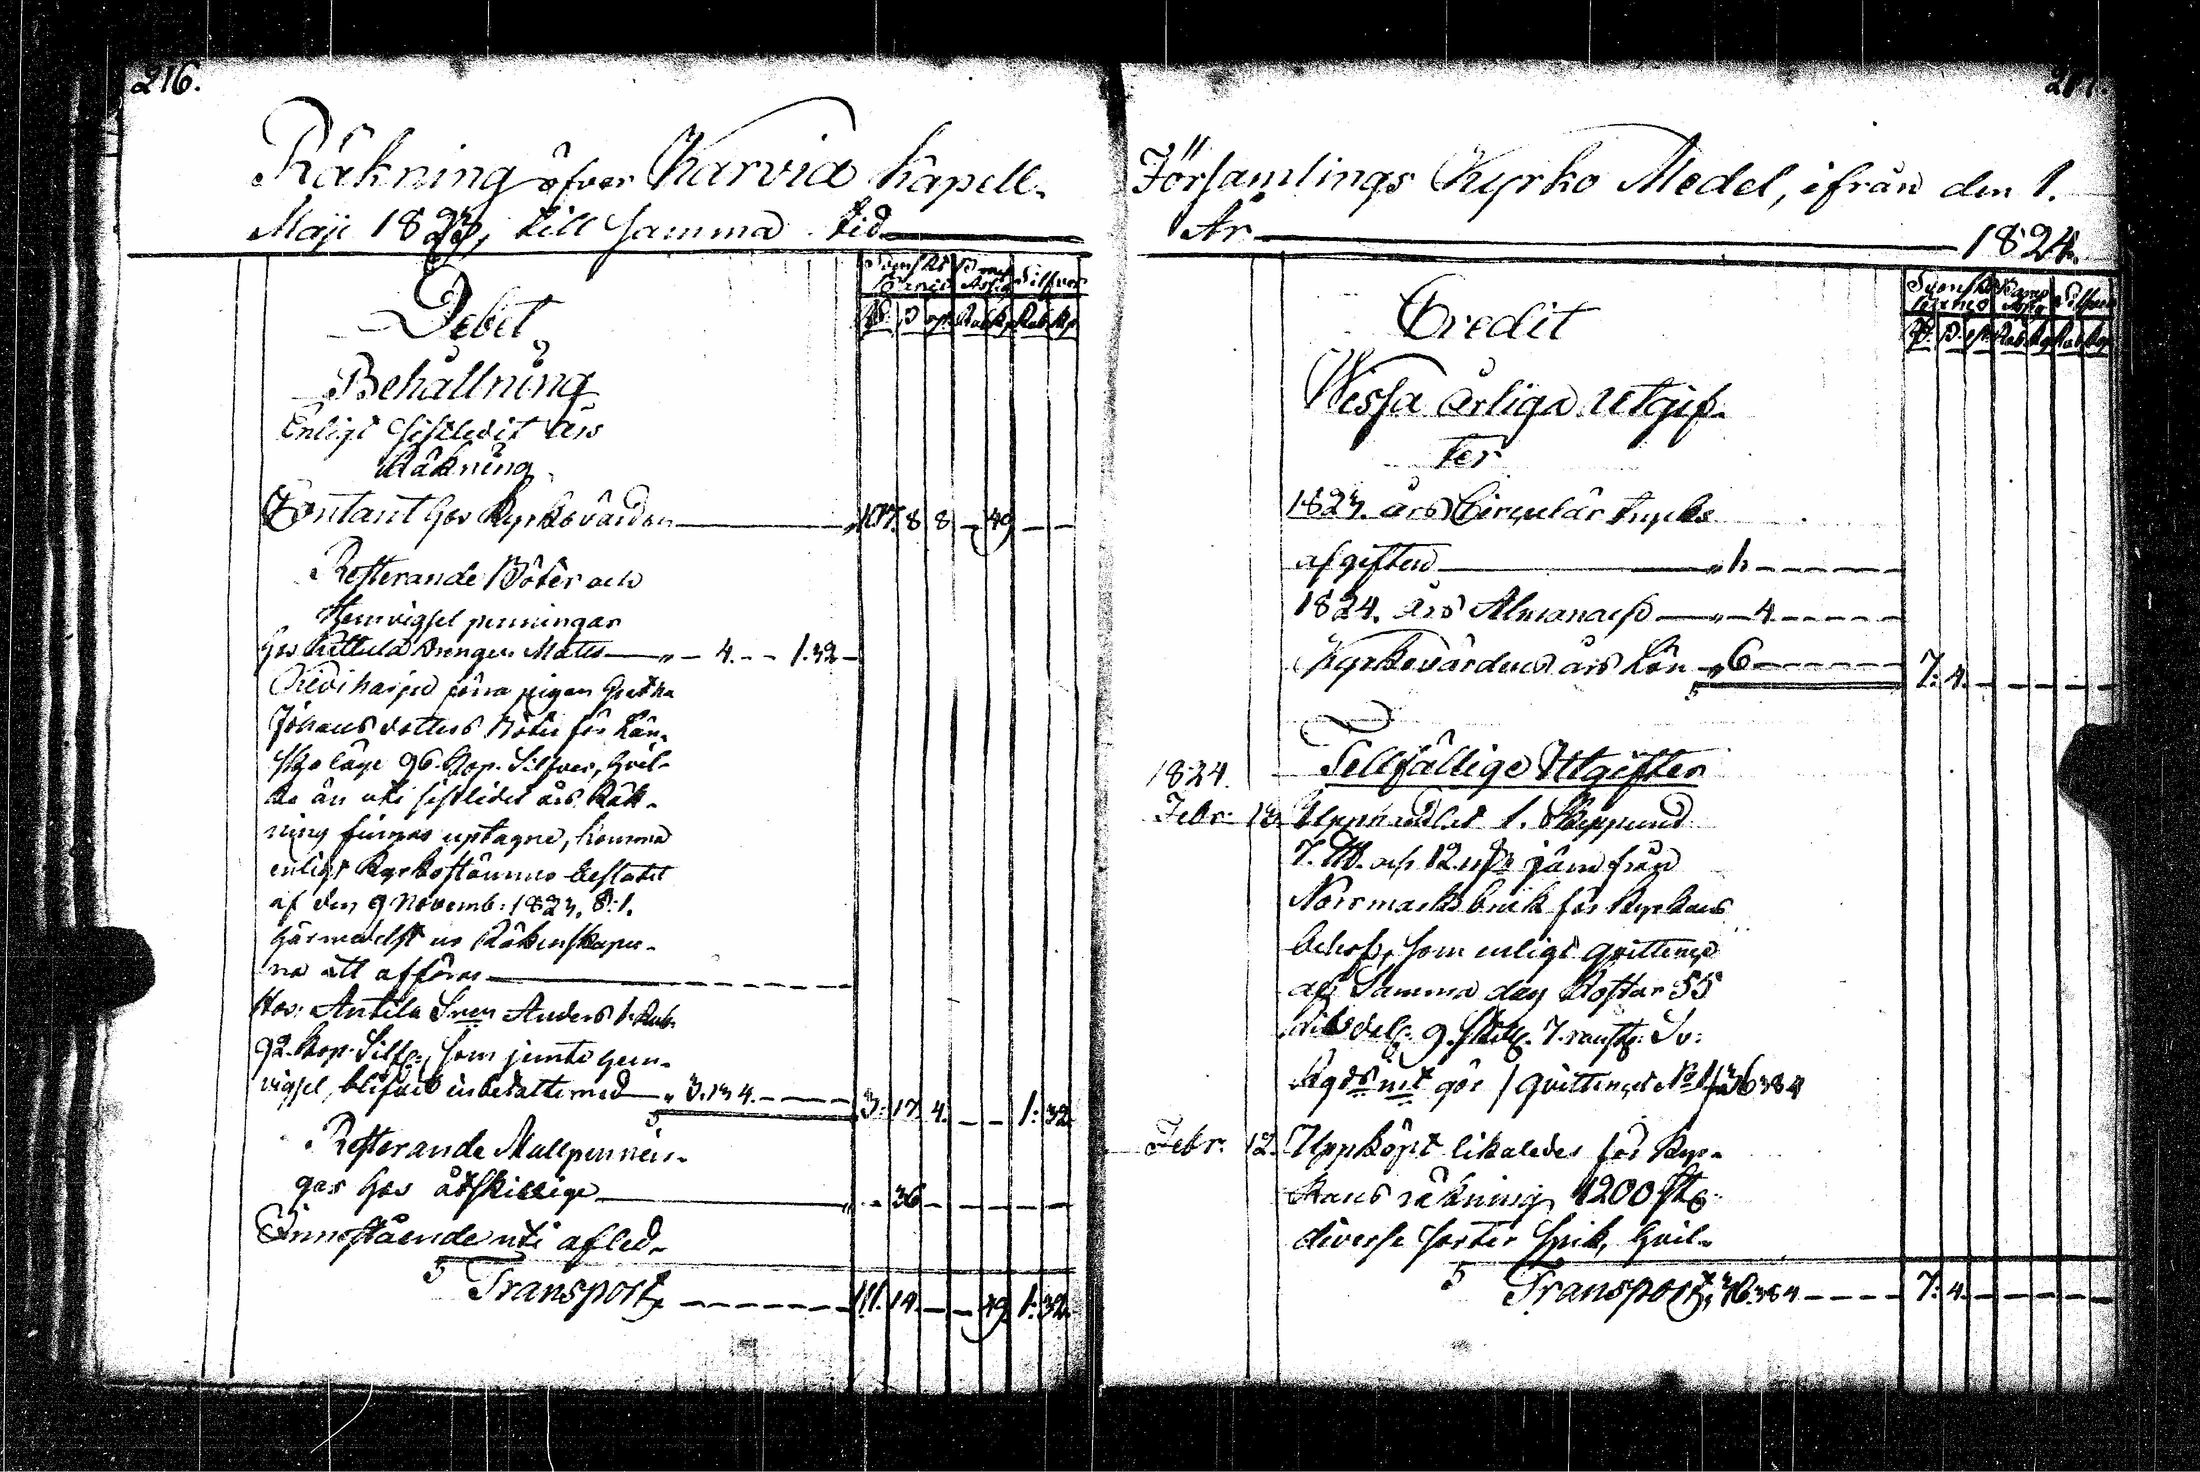 216.
Räkning öfver Karvia Kapell-
Maji 1823, till samma tid
Svenskt Banco Assig Silfver
Debet
Behållning
Enligt sistledit års
Räkning
Contant hos Kyrkovärden 107. 8 8 – 49 – –
Resterande Böter och
Hemvigsel penningar
hos Kittula Drengen Matts – 4. – – 1.32 –
pigan Gretha
Johans dotters Böter för Län-
skaläge 96. Kop. Silfver, hvil-
ka än uti sistledit års Räk-
ning finnas uptagne, komma
enligt Kyrkostämmo beslutet
af den 9 Novemb: 1823. §. 1.
härmedelst ur Räkenskaper-
na att afföras
Hos: Antila Anders 1. Rub.
92. Kop. Silf:, som jemte hem-
vigsel, blifvit inberättemed „ 3.13 4. 3: 17. 4. – – 1: 32.
Resterande Mullpennin-
gar hos åtskillige – 36 –
Innestående uti afled-
Transport, 111. 14. – – 49. 1: 32.
217.
Församlings Kyrko Medel, ifrån den 1.
År 1824.
Svenskt Banco Silfver
Credit
Wissa årliga Utgif-
ter
1823. års Circulär trycks
afgiften „ 1.
1824. års Almanach „ 4.
Kyrkovärdens års Lön „ 6 7: 4.
Tillfällige Utgifter
1824.
Febr. 12. Upphandlat 1. Skeppund
7. och 12. järn från
Norrmarks bruk för Kyrkans
behof, som enligt qvittence
af Samma dag kostar 55
Riksdal: 9. Skill. 7. runst: Sv:
gör / qvittencet No 1/ 36 38 4
Febr. 12. Uppköpt likaledes för Kyr-
kans räkning 1200 st:
diverse sorter Spik, hvil-
Transport, 36.38 4 7: 4.